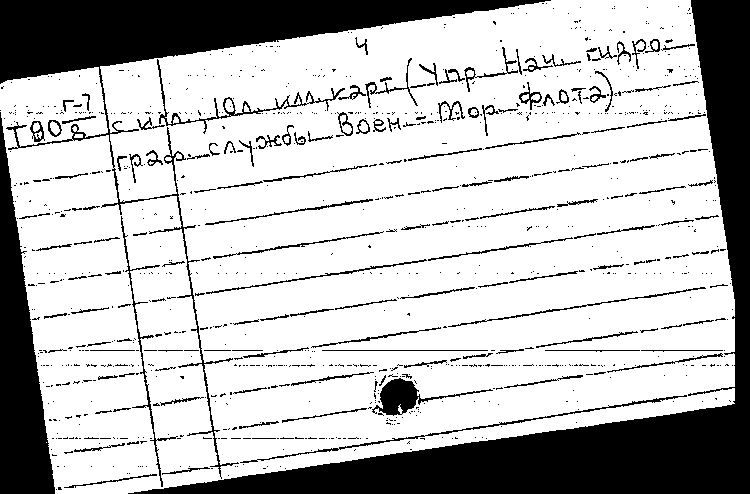 4
Г-7
Т90 8 с илл.; 10 л. илл., карт (Упр. Нач. гидро-
граф. службы Воен.-Мор. флота).